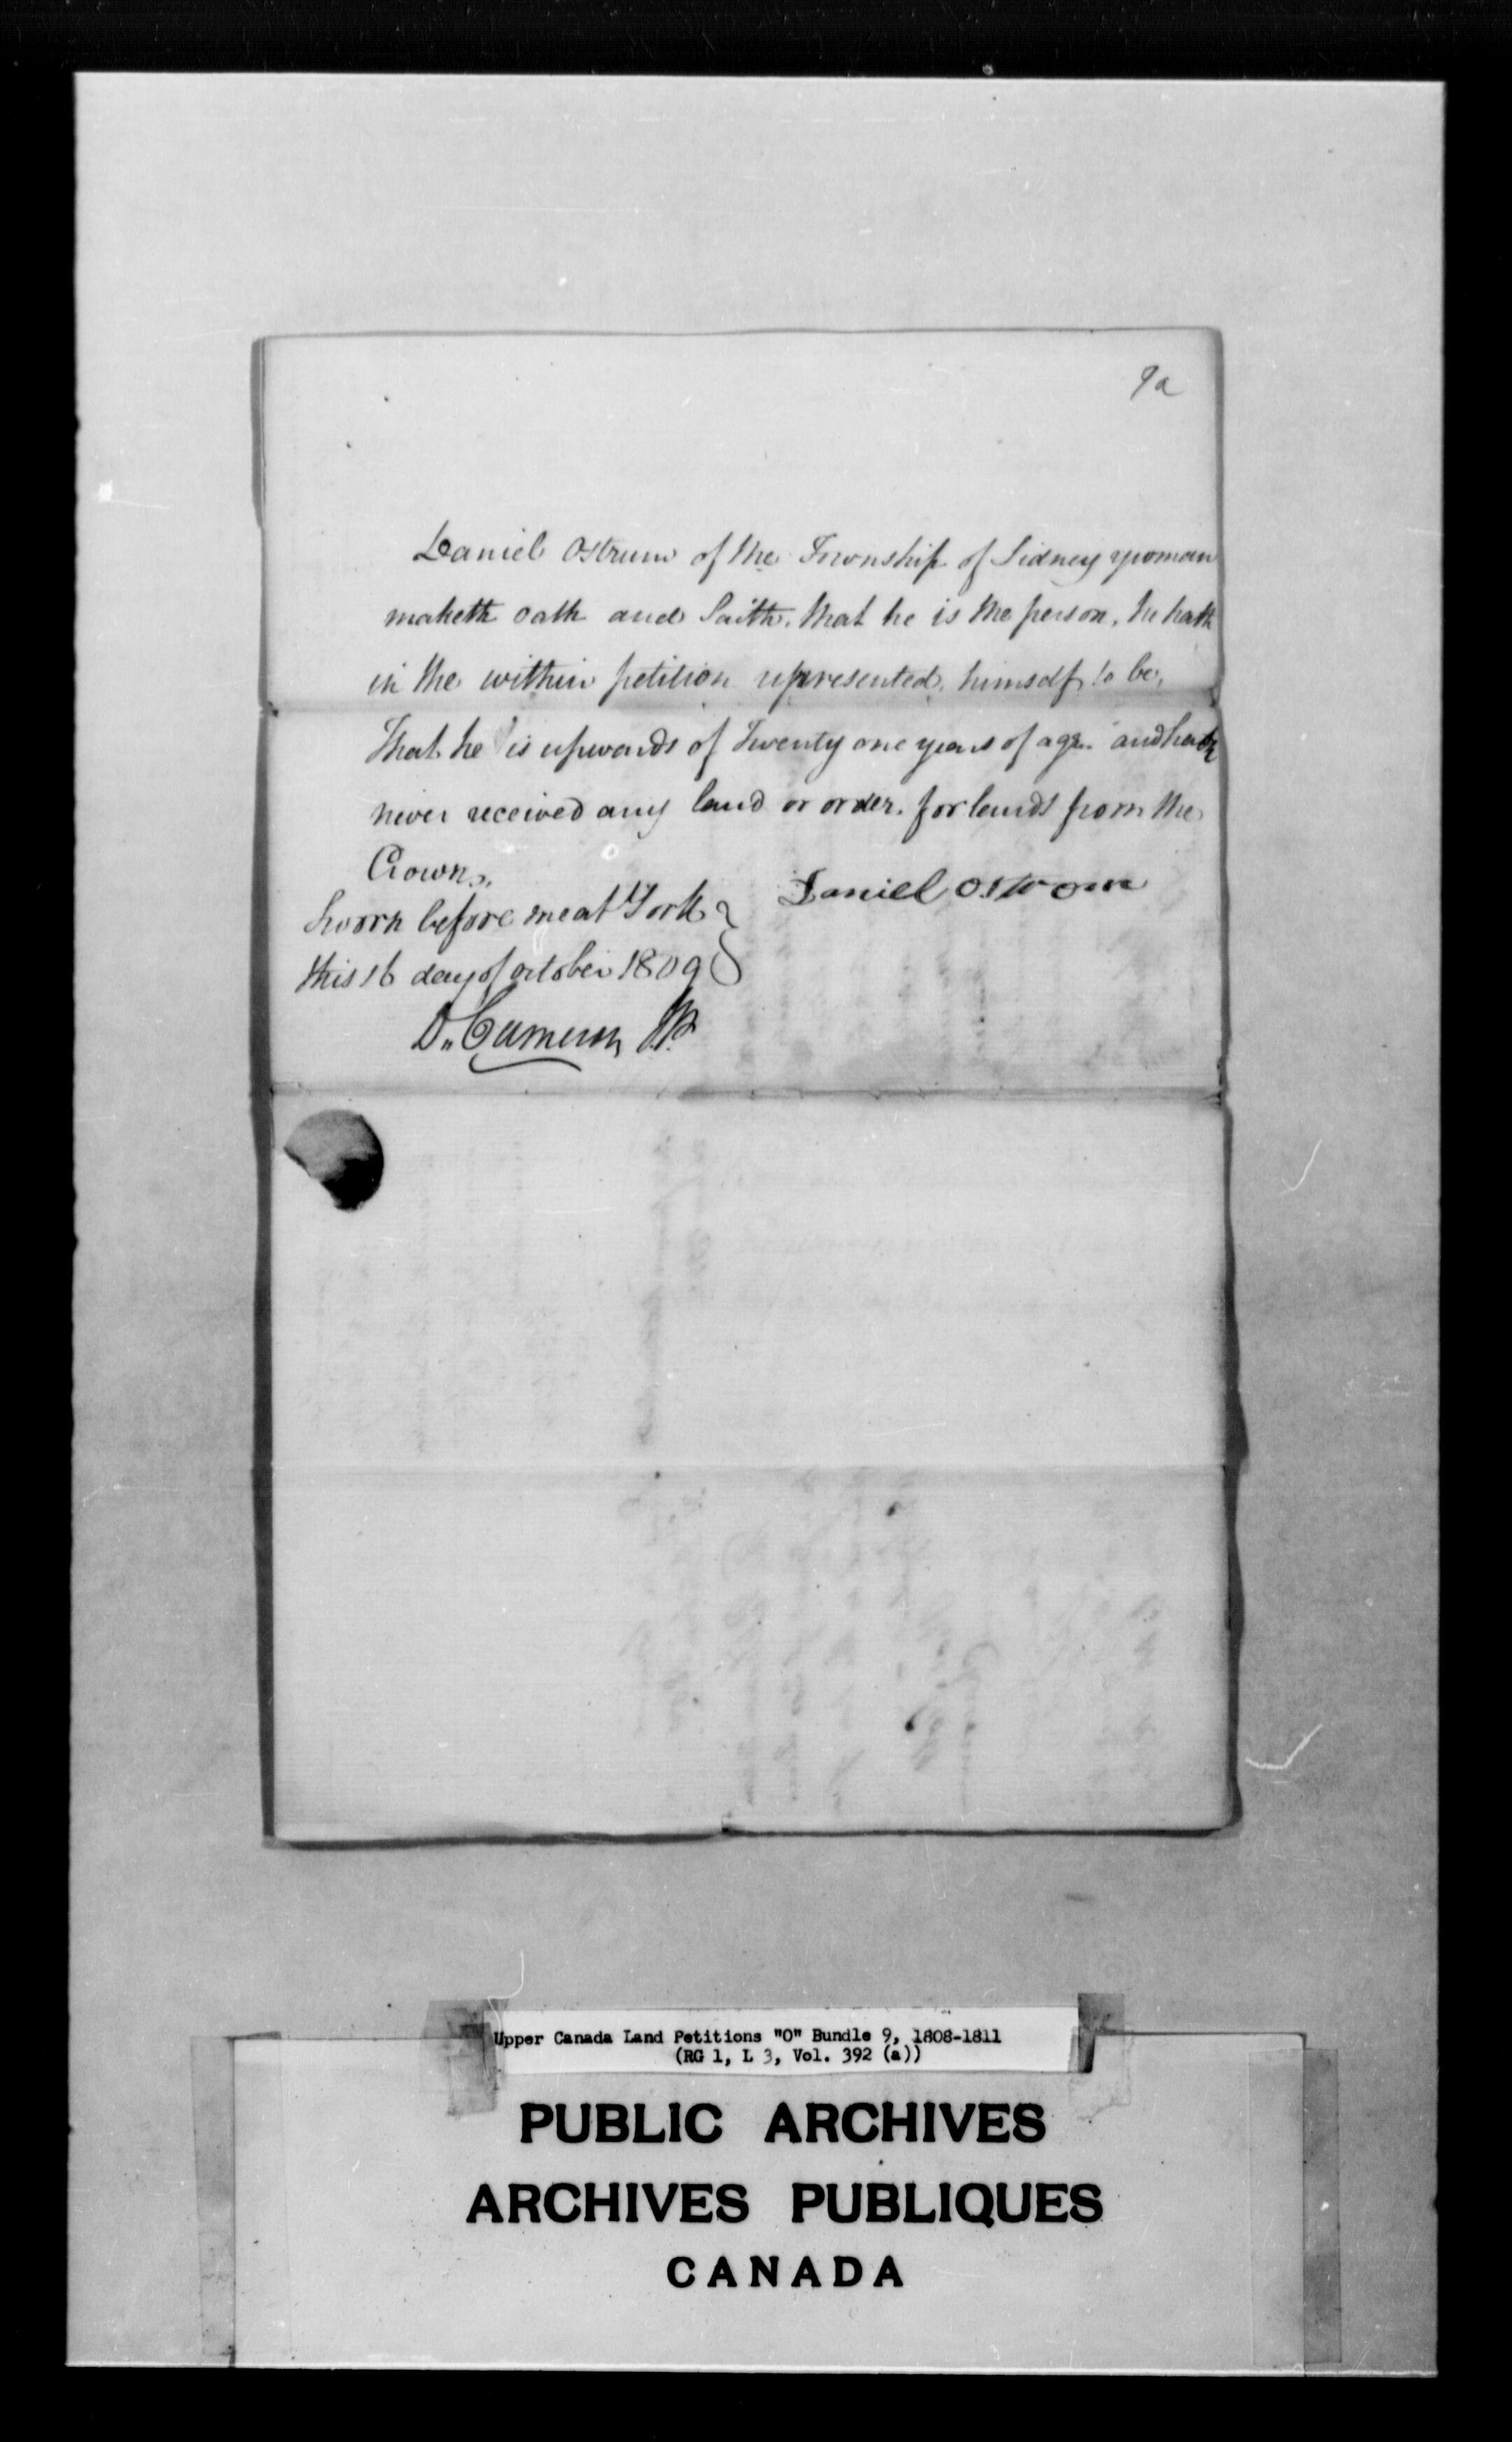 9a
Daniel Ostrum of the Township of Sidney yeoman
maketh oath and Saith, that he is the person, he hath
in the within petition represented, himself to be,
That he is upwards of Twenty one years of age. and hath
never received any land or order. for lands from the
Crown,,
Sworn before me at York
this 16 day of october 1809
Daniel Ostrom
D,, Cameron J.P.
Upper Canada Land Petitions "O" Bundle 9, 1808-1811
(RG 1, L 3, Vol. 392 (a))
PUBLIC ARCHIVES
ARCHIVES PUBLIQUES
CANADA